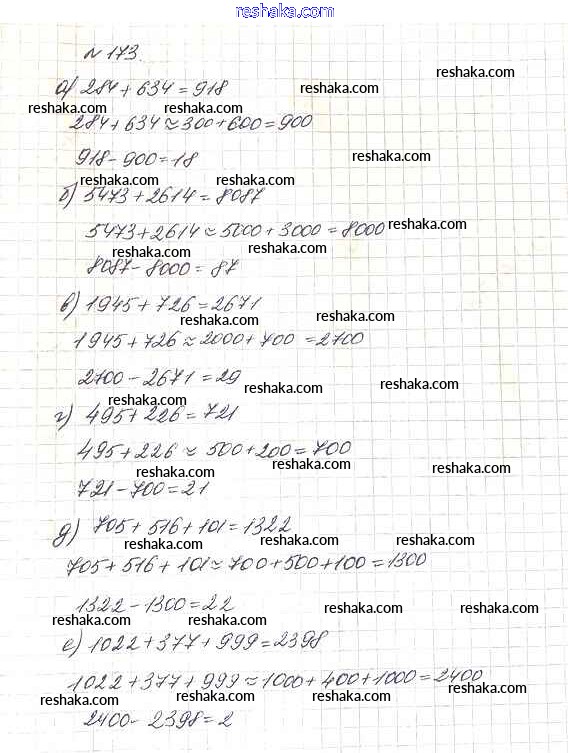 reshaka.com
№ 173.
а) 284 + 634 = 918
reshaka.com
reshaka.com
reshaka.com reshaka.com
284 + 634 ≈ 300 + 600 = 900
918 - 900 = 18
reshaka.com
reshaka.com reshaka.com
б) 5473 + 2614 = 8087
5473 + 2614 ≈ 5000 + 3000 = 8000
reshaka.com
reshaka.com reshaka.com
8087 - 8000 = 87
в) 1945 + 726 = 2671
reshaka.com reshaka.com
1945 + 726 ≈ 2000 + 700 = 2700
2700 - 2671 = 29
reshaka.com reshaka.com
reshaka.com
г) 495 + 226 = 721
495 + 226 ≈ 500 + 200 = 700
reshaka.com reshaka.com reshaka.com
721 - 700 = 21
д) 705 + 516 + 101 = 1322
reshaka.com reshaka.com reshaka.com
705 + 516 + 101 ≈ 700 + 500 + 100 = 1300
1322 - 1300 = 22
reshaka.com reshaka.com reshaka.com reshaka.com
е) 1022 + 377 + 999 = 2398
1022 + 377 + 999 ≈ 1000 + 400 + 1000 = 2400
reshaka.com reshaka.com reshaka.com reshaka.com
2400 - 2398 = 2